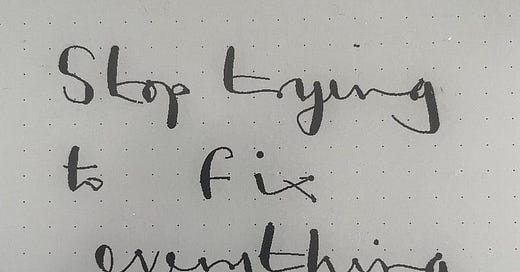 Stop trying
to fix
everything